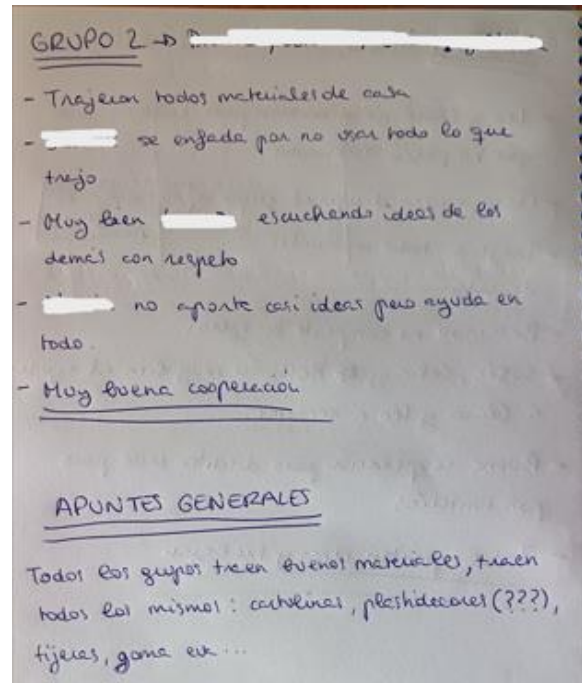 GRUPO 2 →
- Trajeron todos materiales de casa
- se enfada por no usar todo lo que
trajo
- Muy bien escuchando ideas de los
demás con respeto
- no aporta casi ideas pero ayuda en
todo.
- Muy buena cooperación
APUNTES GENERALES
Todos los grupos traen buenos materiales, traen
todos los mismos: cartulinas, plastidecores (???),
tijeras, goma eva...